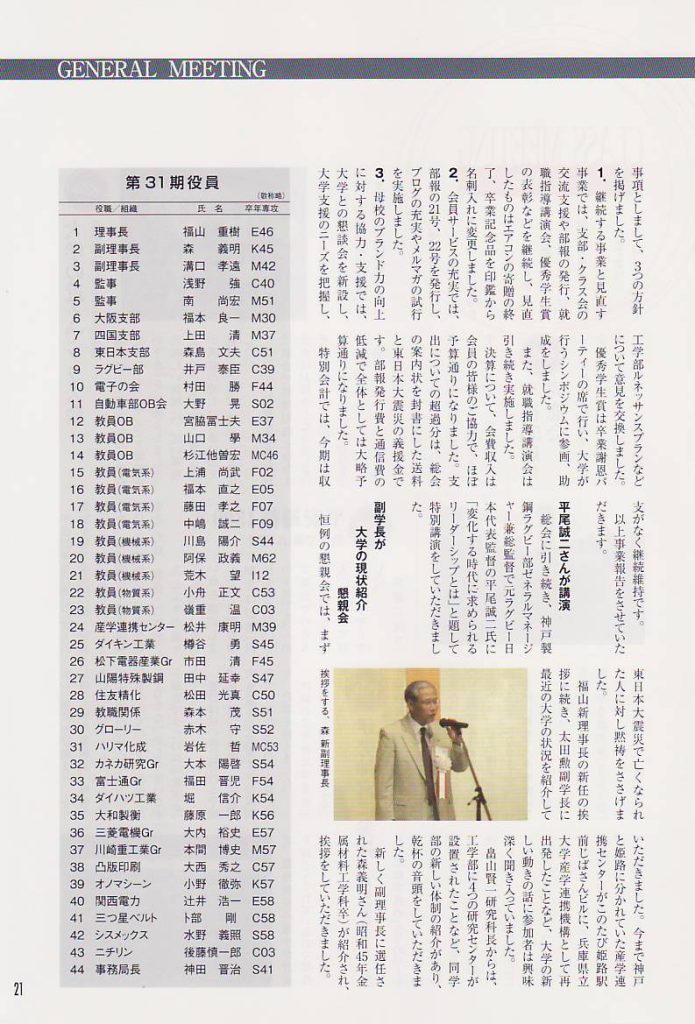 GENERAL MEETING
事項としまして、3つの方針
を掲げました。
1．継続する事業と見直す
事業では、支部・クラス会の
交流支援や部報の発行、就
職指導講演会、優秀学生賞
の表彰などを継続し、見直
したものはエアコンの寄贈の終
了、卒業記念品を印鑑から
名刺入れに変更しました。
2．会員サービスの充実では、
部報の21号、22号を発行し、
ブログの充実やメルマガの試行
を実施しました。
3．母校のブランド力の向上
に対する協力・支援では、
大学との懇談会を新設し、
大学支援のニーズを把握し、
工学部ルネッサンスプランなど
について意見を交換しました。
優秀学生賞は卒業謝恩パ
ーティーの席で行い、大学が
行うシンポジウムに参画、助
成をしました。
また、就職指導講演会は
引き続き実施しました。
決算について、会費収入は
会員の皆様のご協力で、ほぼ
予算通りになりました。支
出についての超過分は、総会
の案内状を封書にした送料
と東日本大震災の義援金で
す。部報発行費と通信費の
低減で全体としては大略予
算通りになりました。
特別会計では、今期は収
支がなく継続維持です。
以上事業報告をさせていた
だきます。
平尾誠二さんが講演
総会に引き続き、神戸製
鋼ラグビー部ゼネラルマネージ
ャー兼総監督で元ラグビー日
本代表監督の平尾誠二氏に
「変化する時代に求められる
リーダーシップとは」と題して
特別講演をしていただきまし
た。
副学長が
大学の現状紹介
懇親会
恒例の懇親会では、まず
東日本大震災で亡くなられ
た人に対し黙祷をささげま
した。
福山新理事長の新任の挨
拶に続き、太田勲副学長に
最近の大学の状況を紹介して
挨拶をする、森 新副理事長
いただきました。今まで神戸
と姫路に分かれていた産学連
携センターがこのたび姫路駅
前じばさんビルに、兵庫県立
大学産学連携機構として再
出発したことなど、大学の新
しい動きの話に参加者は興味
深く聞き入っていました。
畠山賢一研究科長からは、
工学部に4つの研究センターが
設置されたことなど、同学
部の新しい体制の紹介があり、
乾杯の音頭をしていただきま
した。
新しく副理事長に選任さ
れた森義明さん（昭和45年金
属材料工学科卒）が紹介され、
挨拶をしていただきました。
第31期役員
（敬称略）
役職／組織 氏 名 卒年専攻
1 理事長 福山 重樹 E46
2 副理事長 森 義明 K45
3 副理事長 溝口 孝遠 M42
4 監事 浅野 強 C40
5 監事 南 尚宏 M51
6 大阪支部 福本 良一 M30
7 四国支部 上田 清 M37
8 東日本支部 森島 文夫 C51
9 ラグビー部 井戸 泰臣 C39
10 電子の会 村田 勝 F44
11 自動車部OB会 大野 晃 S02
12 教員OB 宮脇冨士夫 E37
13 教員OB 山口 學 M34
14 教員OB 杉江他曽宏 MC46
15 教員（電気系） 上浦 尚武 F02
16 教員（電気系） 福本 直之 E05
17 教員（電気系） 藤田 孝之 F07
18 教員（電気系） 中嶋 誠二 F09
19 教員（機械系） 川島 陽介 S44
20 教員（機械系） 阿保 政義 M62
21 教員（機械系） 荒木 望 I12
22 教員（物質系） 小舟 正文 C53
23 教員（物質系） 嶺重 温 C03
24 産学連携センター 松井 康明 M39
25 ダイキン工業 樽谷 勇 S45
26 松下電器産業Gr 市田 清 F45
27 山陽特殊製鋼 田中 延幸 S47
28 住友精化 松田 光真 C50
29 教職関係 森本 茂 S51
30 グローリー 赤木 守 S52
31 ハリマ化成 岩佐 哲 MC53
32 カネカ研究Gr 大本 陽啓 S54
33 富士通Gr 福田 晋児 F54
34 ダイハツ工業 堀 信介 K54
35 大和製衡 藤原 一郎 K56
36 三菱電機Gr 大内 裕史 E57
37 川崎重工業Gr 本間 博史 M57
38 凸版印刷 大西 秀之 C57
39 オノマシーン 小野 徹弥 K57
40 関西電力 辻井 浩一 E58
41 三つ星ベルト 卜部 剛 C58
42 シスメックス 水野 義照 S58
43 ニチリン 後藤慎一郎 C03
44 事務局長 神田 晋治 S41
21